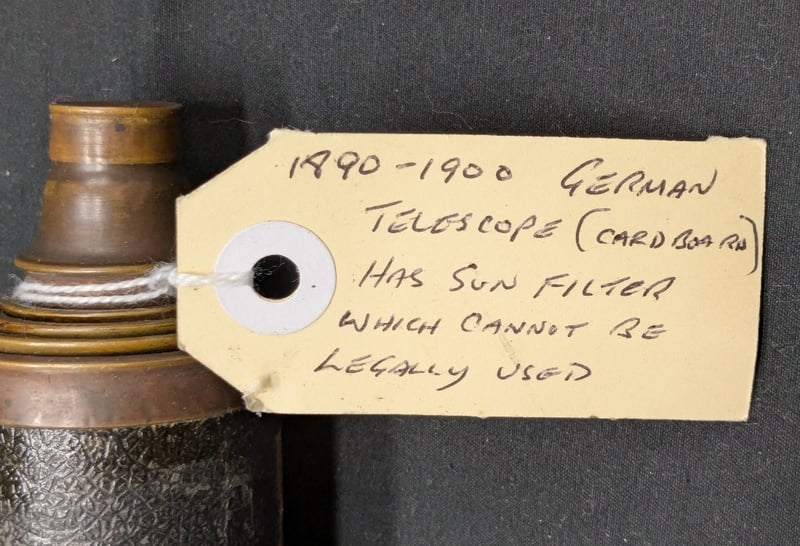 1890-1900 GERMAN
TELESCOPE (CARDBOARD)
HAS SUN FILTER
WHICH CANNOT BE
LEGALLY USED